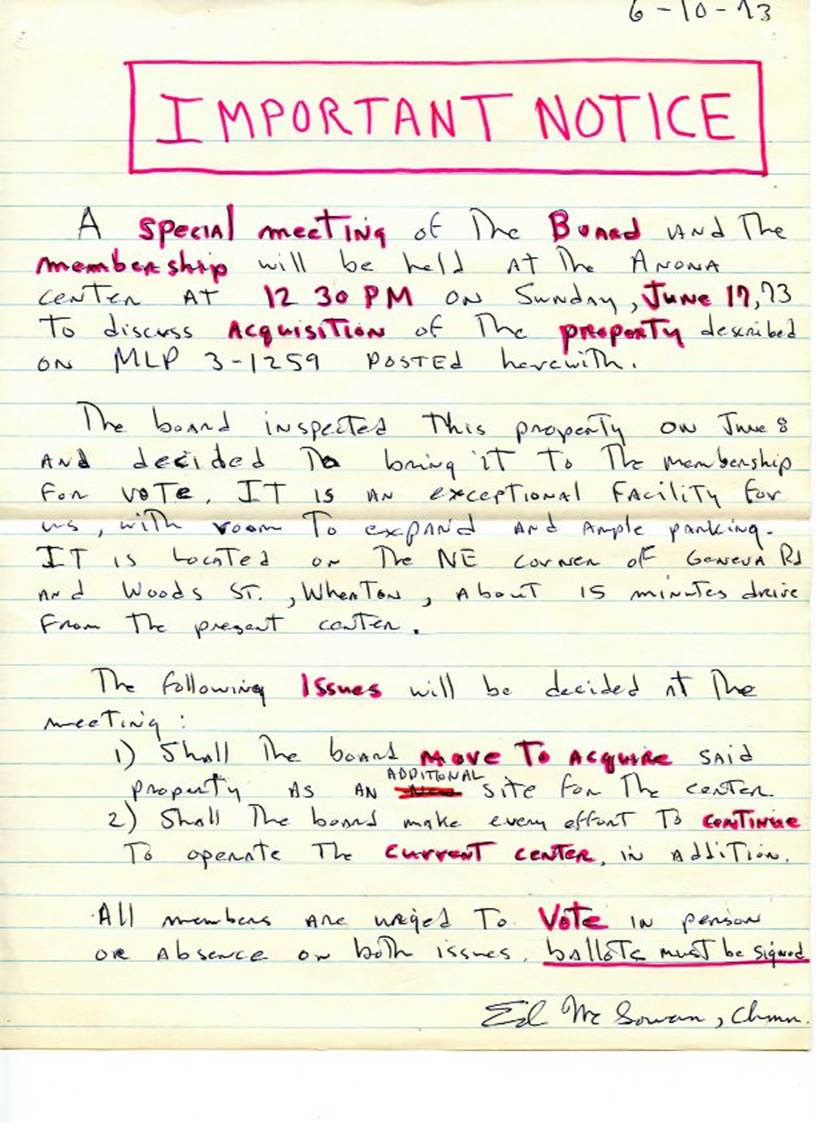 6-10-73
IMPORTANT NOTICE
A special meeting of The Board and The
membership will be held at the Anona
center at 12 30 PM on Sunday, June 17, 73
to discuss Acquisition of The property described
on MLP 3-1259 posted herewith.
The board inspected this property on June 8
and decided To bring it to The membership
for vote. It is an exceptional facility for
us, with room to expand and ample parking.
It is located on The NE corner of Geneva Rd
and Woods St., Wheaton, about 15 minutes drive
from the present center.
The following Issues will be decided at The
meeting:
1) Shall The board move to acquire said
ADDITIONAL
property as an site for The center.
2) Shall The board make every effort to continue
To operate The current center, in addition.
All members are urged to Vote in person
or absence on both issues. ballots must be signed
Ed Mc Gowan, Chmn.